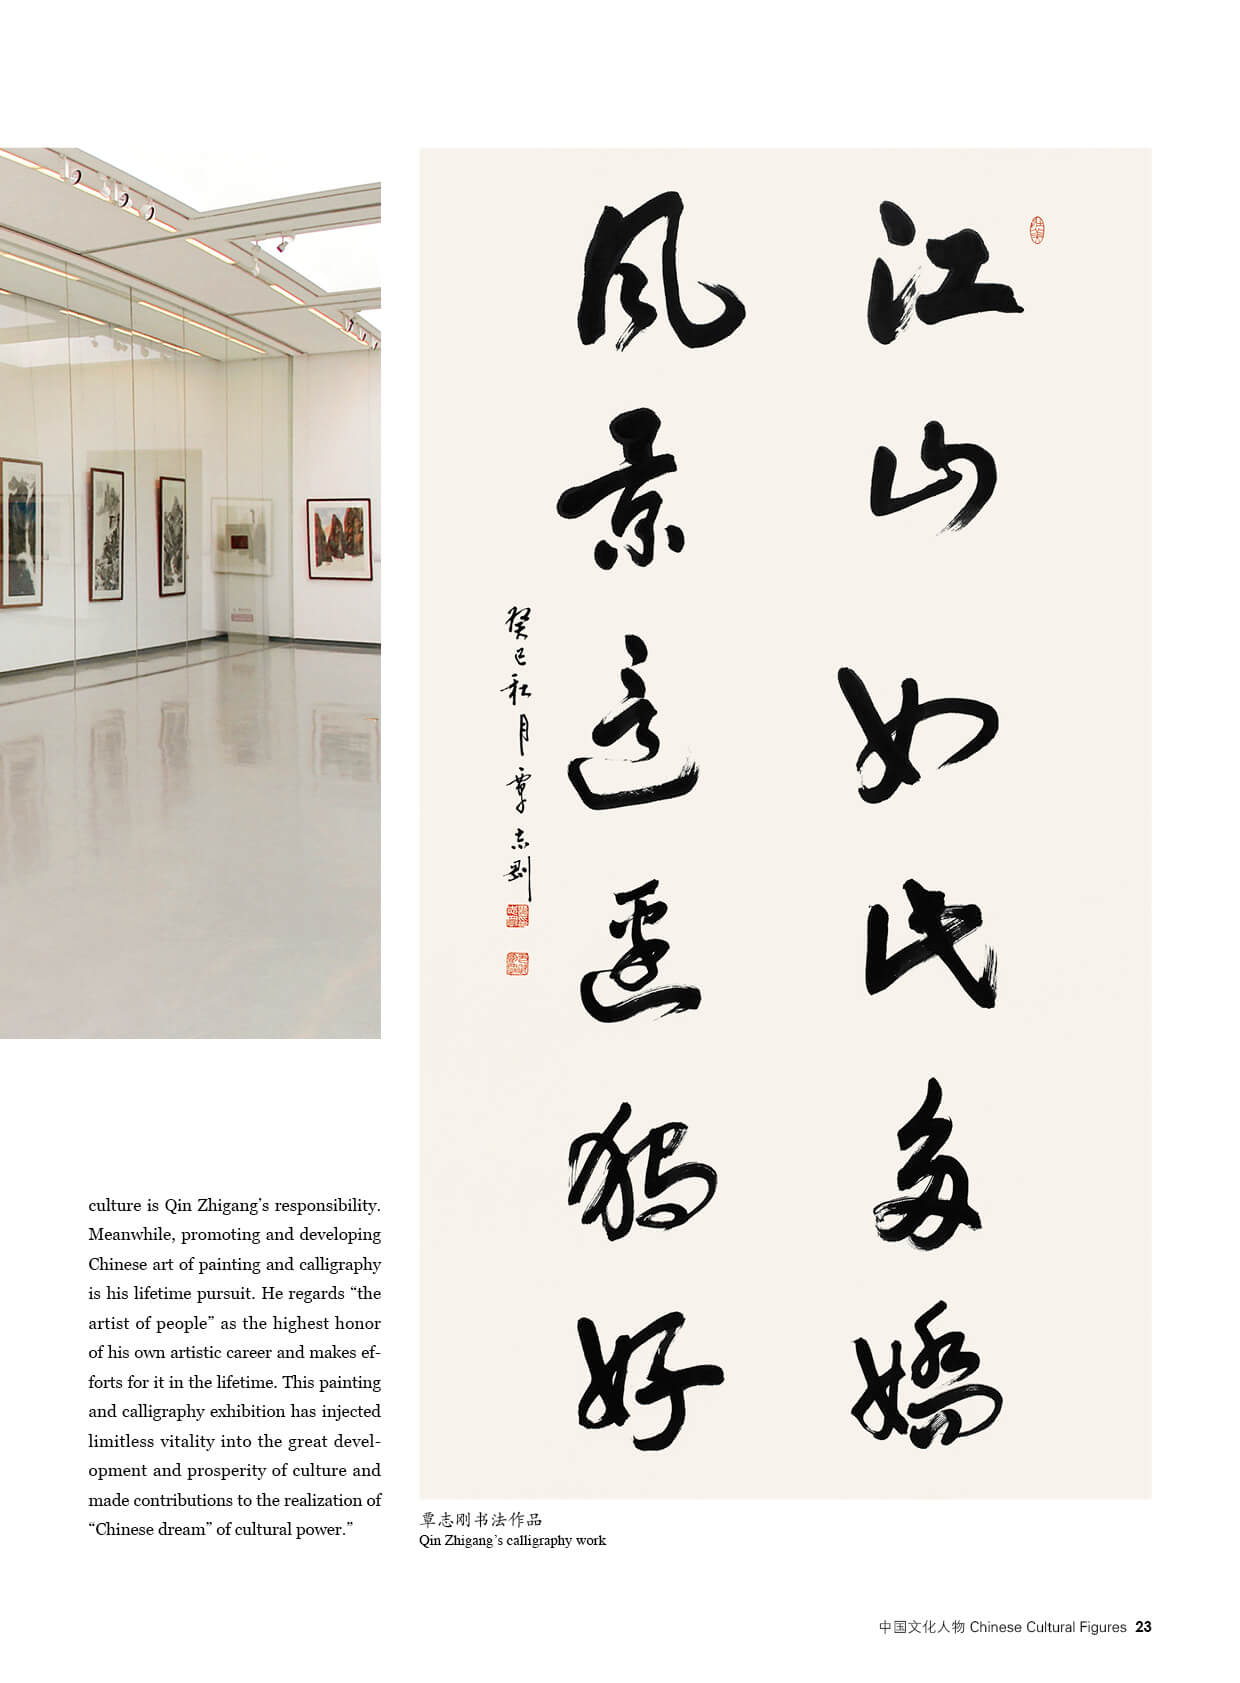 江山如此多嬌
風景這邊獨好
癸巳秋月覃志剛
culture is Qin Zhigang’s responsibility.
Meanwhile, promoting and developing
Chinese art of painting and calligraphy
is his lifetime pursuit. He regards “the
artist of people” as the highest honor
of his own artistic career and makes ef-
forts for it in the lifetime. This painting
and calligraphy exhibition has injected
limitless vitality into the great devel-
opment and prosperity of culture and
made contributions to the realization of
“Chinese dream” of cultural power.”
覃志刚书法作品
Qin Zhigang’s calligraphy work
中国文化人物 Chinese Cultural Figures 23